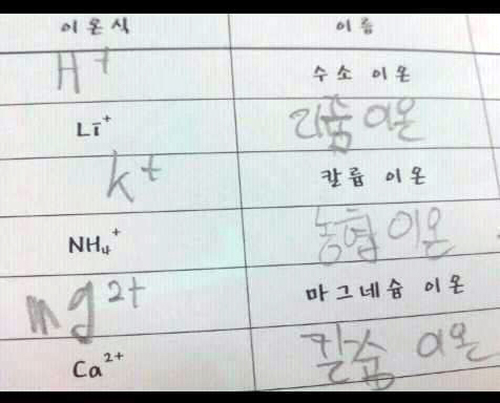 이온식 이름
H+ 수소 이온
Li+ 리튬 이온
k+ 칼륨 이온
NH4+ 농협 이온
mg2+ 마그네슘 이온
Ca2+ 칼슘 이온